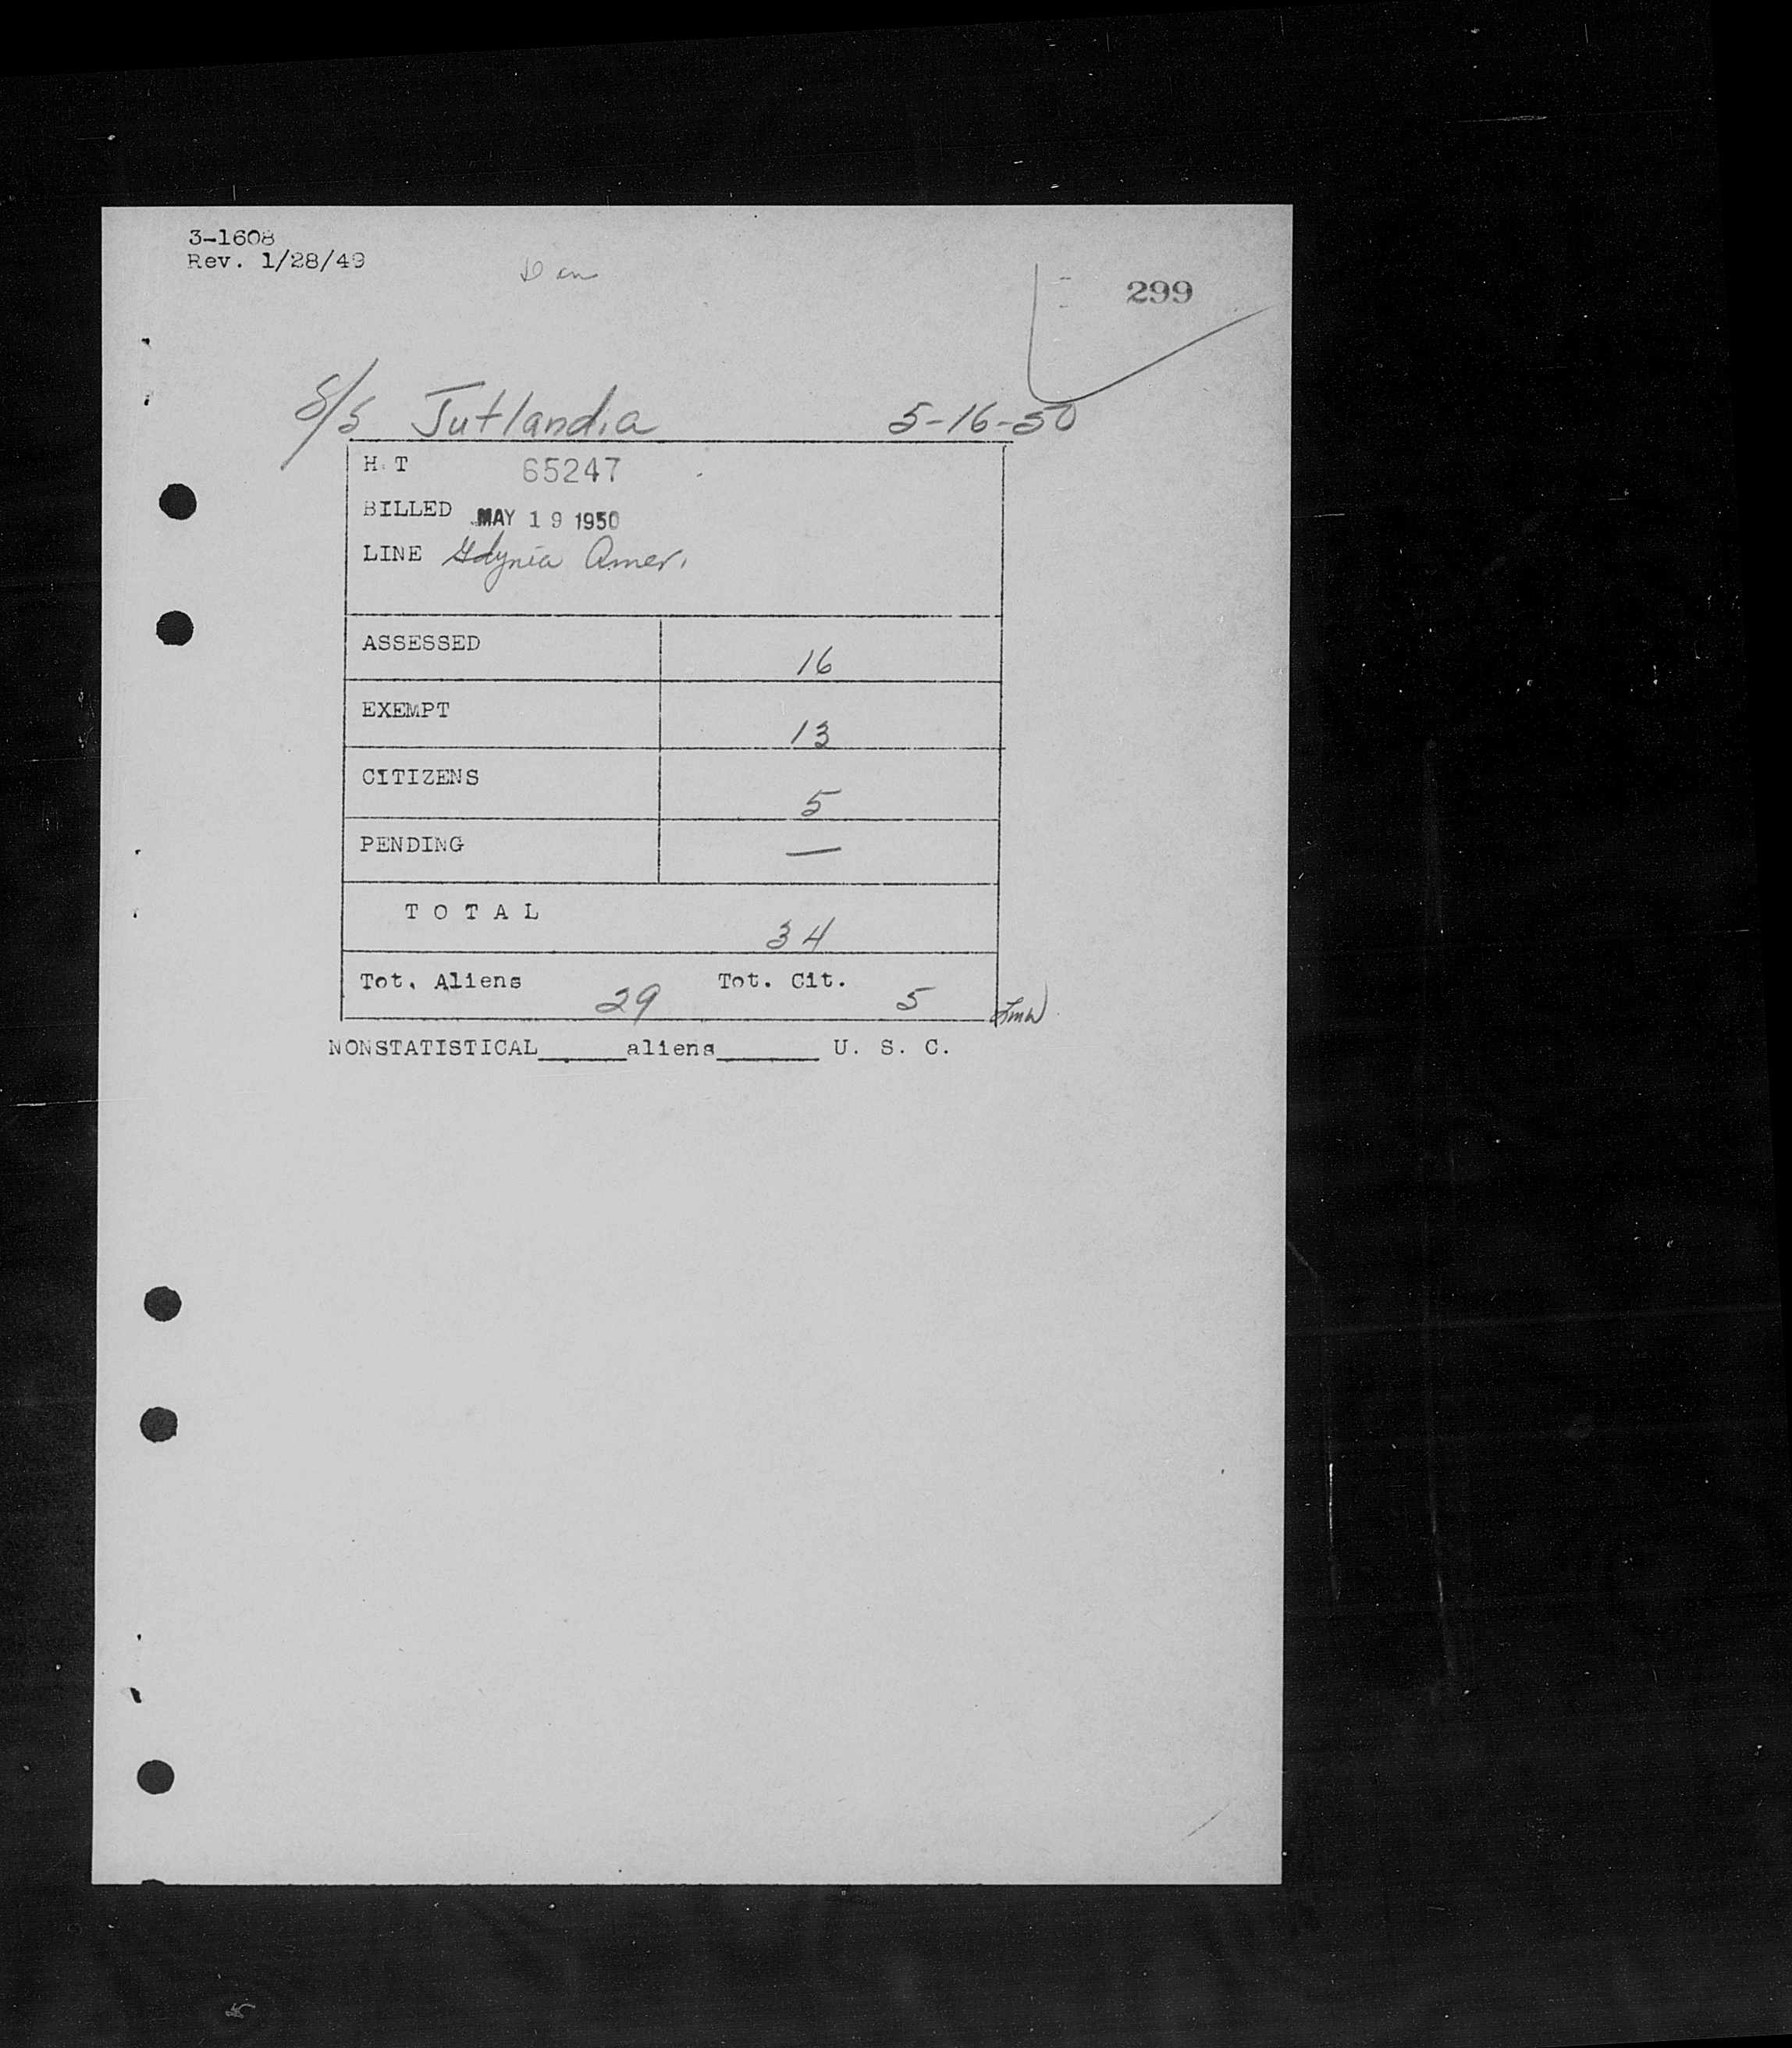 3-1608
Rev. 1/28/49
299
S/S Jutlandia 5-16-50
H. T 65247
BILLED MAY 19 1950
LINE Gdynia Amer.
ASSESSED 16
EXEMPT 13
CITIZENS 5
PENDING —
TOTAL 34
Tot. Aliens 29 Tot. Cit. 5
NONSTATISTICAL______aliens_______ U. S. C.